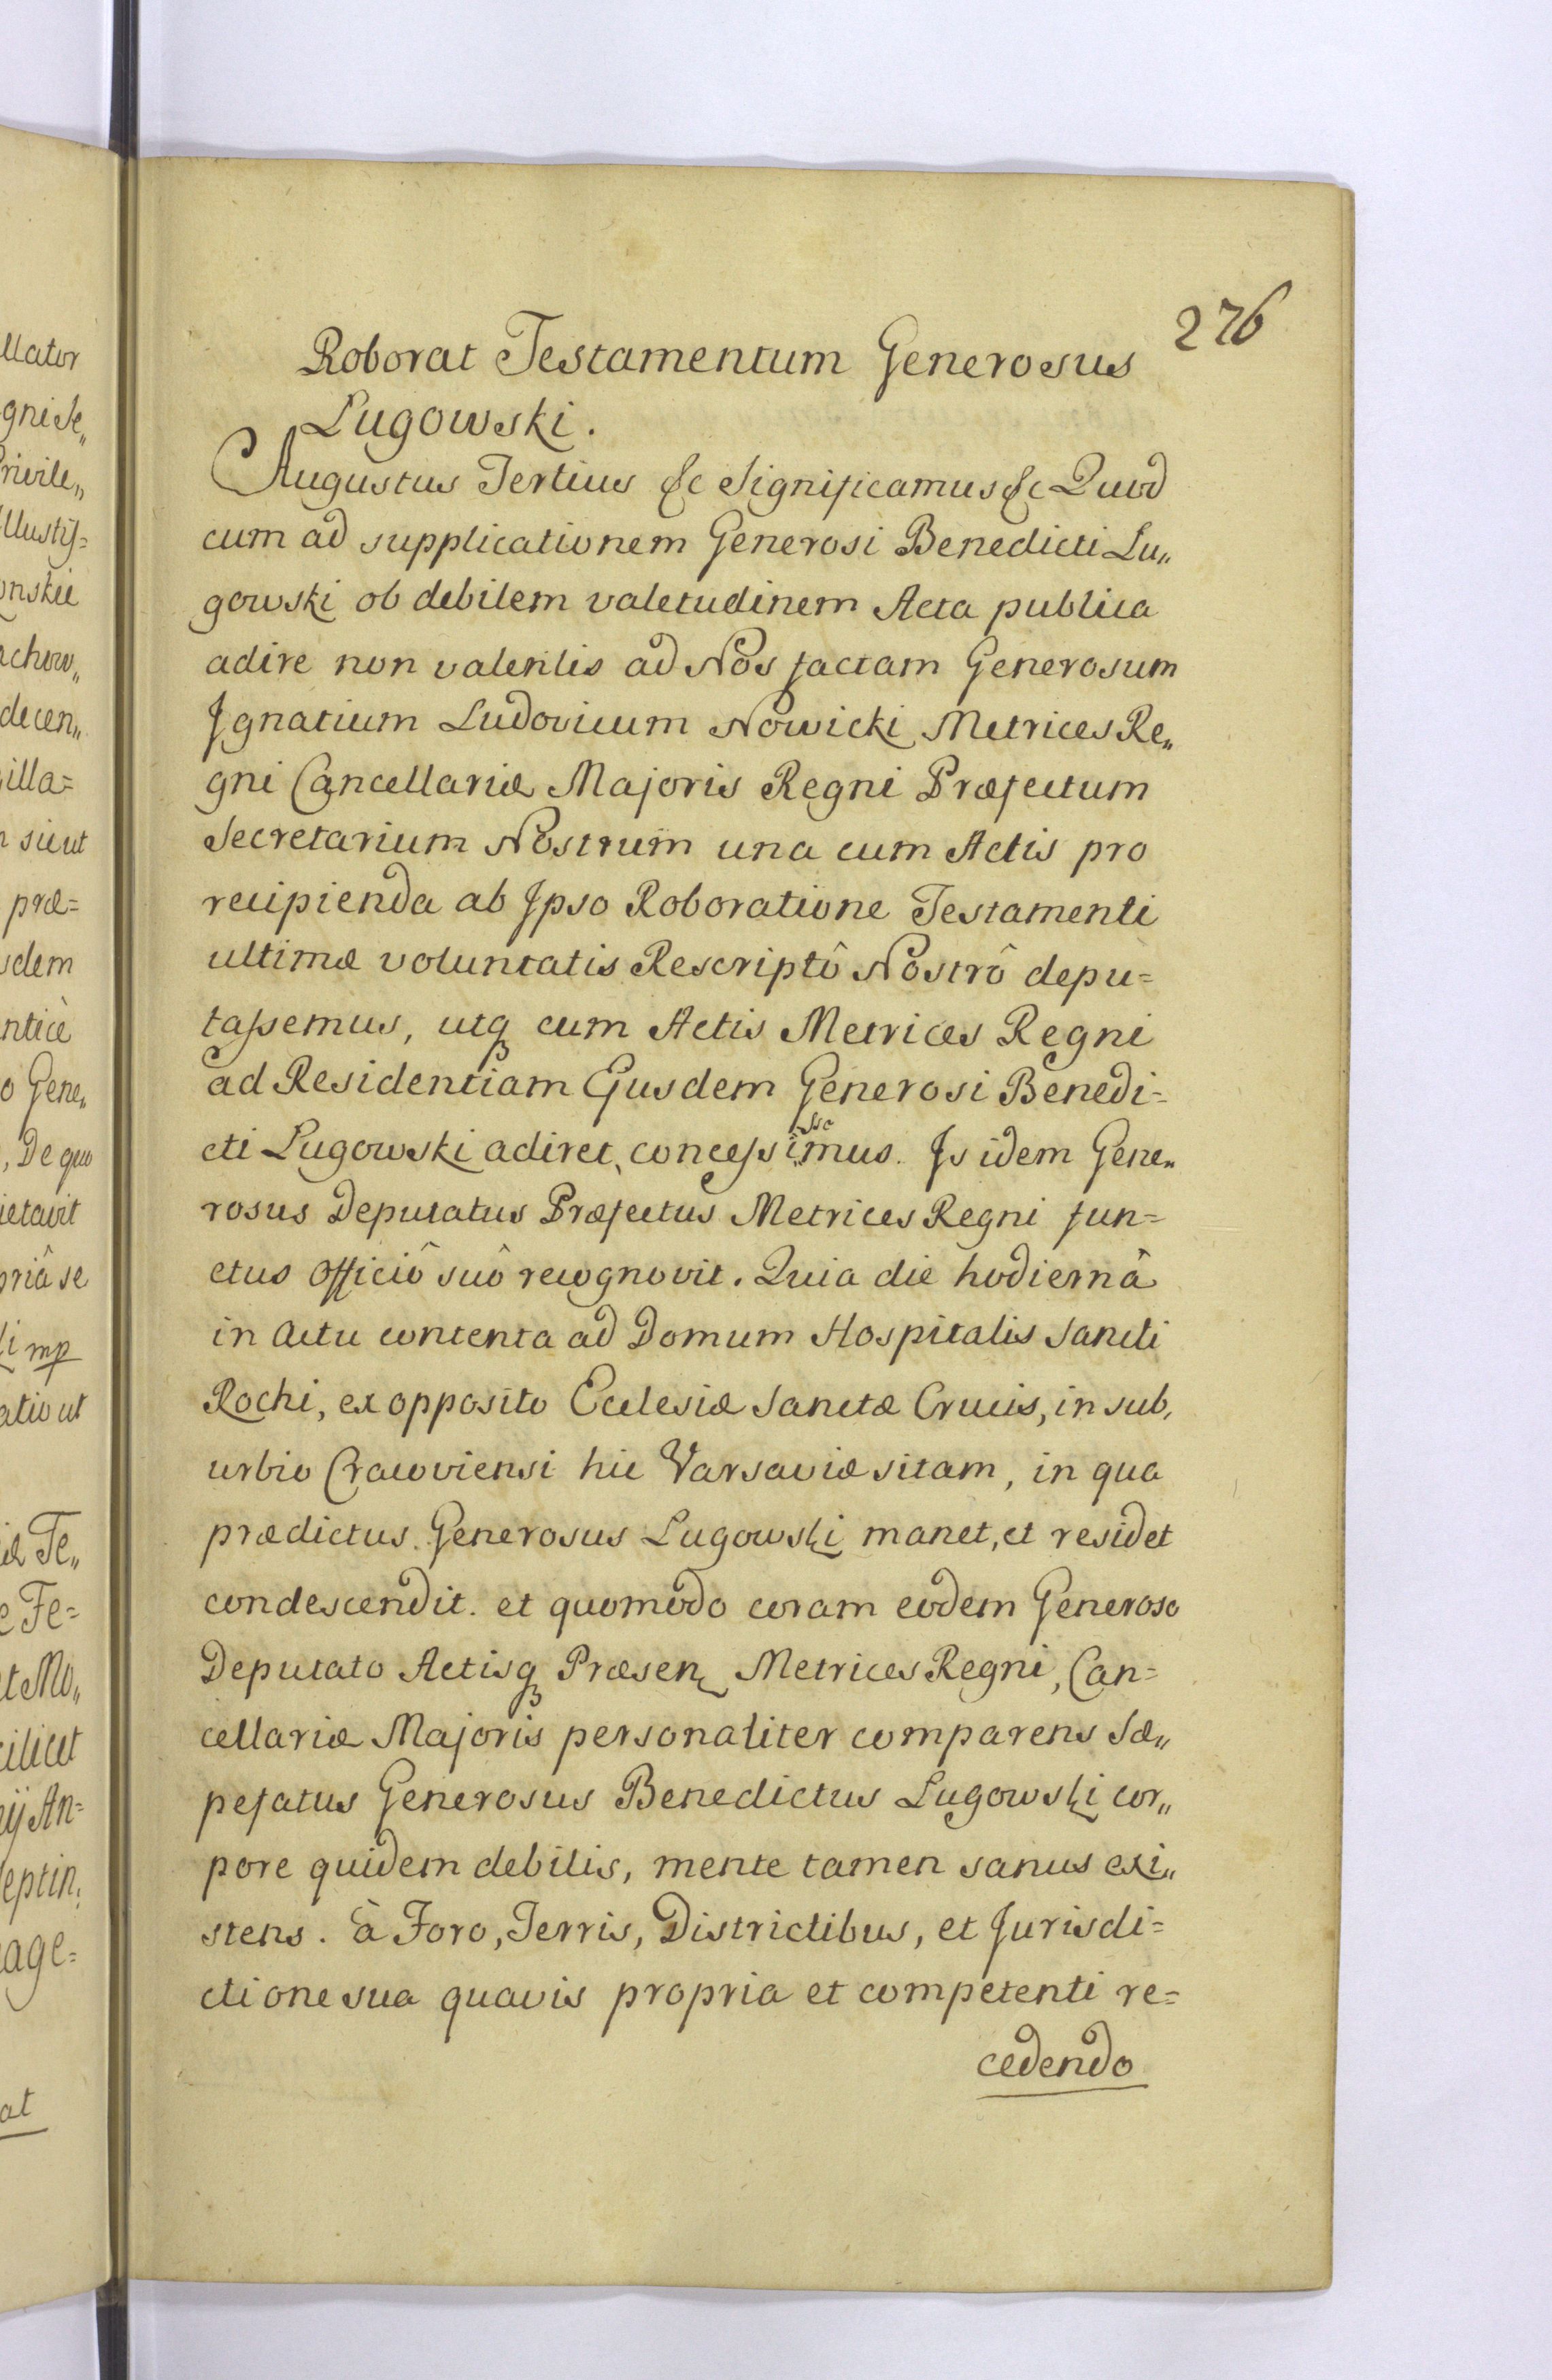 276
Roborat Testamentum Generosus
Lugowski.
Augustus Tertius &c Significamus &c Quod
cum ad supplicationem Generosi Benedicti Lu„
gowski ob debilem valetudinem Acta publica
adire non valentis ad Nos factam Generosum
Ignatium Ludovicum Nowicki Metrices Re„
gni Cancellariæ Majoris Regni Præfectum
Secretarium Nostrum una cum Actis pro
recipienda ab Ipso Roboratione Testamenti
ultimæ voluntatis Rescriptô Nostrô depu=
tassemus, utq cum Actis Metrices Regni
ad Residentiam Ejusdem Generosi Benedi=
cti Lugowski adiret, concessimus. Is idem Gene„
rosus Deputatus Præfectus Metrices Regni fun=
ctus officiô suô recognovit. Quia die hodiernâ
in actu contenta ad Domum Hospitalis Sancti
Rochi, ex opposito Ecclesiæ Sanctæ Crucis, in sub,
urbio Cracoviensi hic Varsaviæ sitam, in qua
prædictus Generosus Lugowski manet, et residet
condescendit. et quomodo coram eodem Generoso
Deputato Actisq Præsen Metrices Regni, Can=
cellariæ Majoris personaliter comparens Sæ„
pefatus Generosus Benedictus Lugowski cor„
pore quidem debilis, mente tamen sanus exi„
stens. à Foro, Terris, Districtibus, et Jurisdi=
ctione sua quavis propria et competenti re=
cedendo